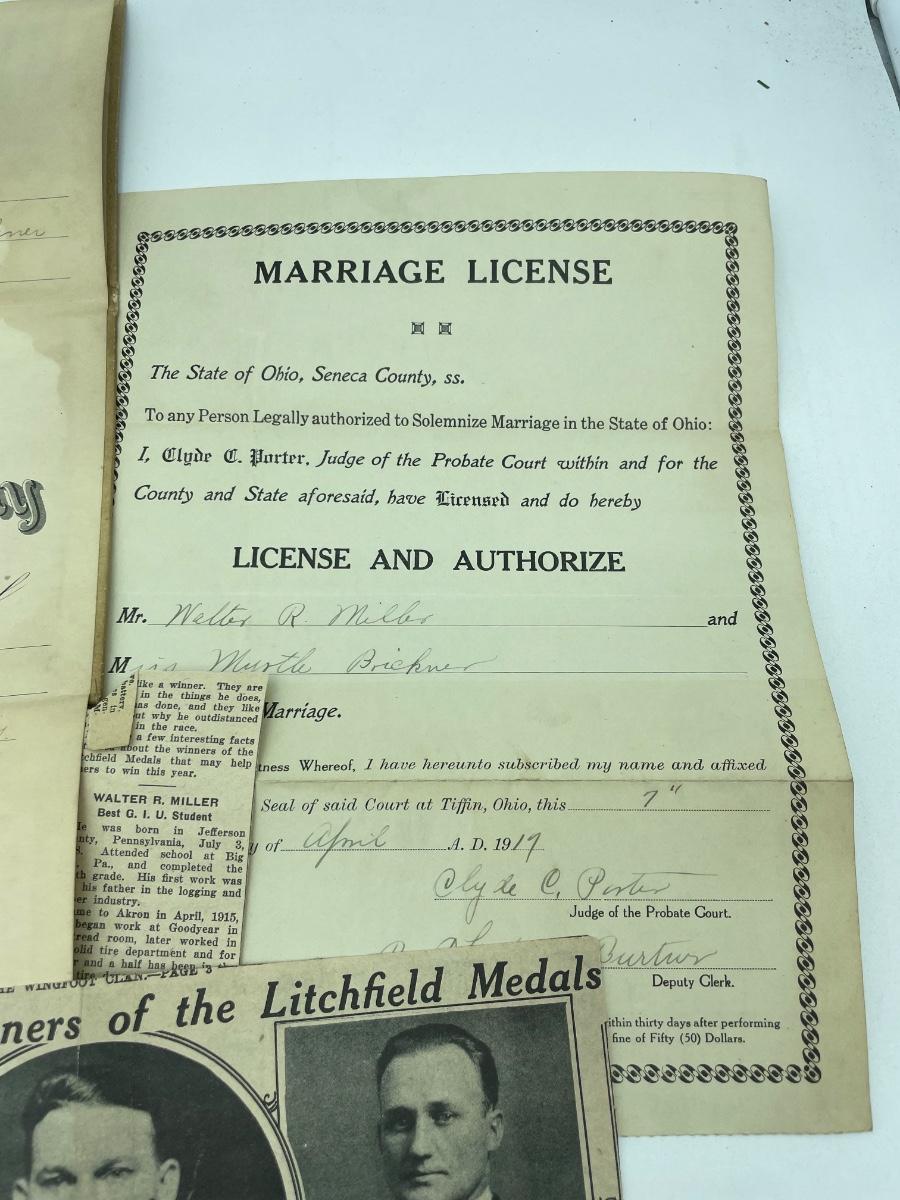 MARRIAGE LICENSE
The State of Ohio, Seneca County, ss.
To any Person Legally authorized to Solemnize Marriage in the State of Ohio:
I, Clyde C. Porter, Judge of the Probate Court within and for the
County and State aforesaid, have Licensed and do hereby
LICENSE AND AUTHORIZE
Mr. Walter R. Miller and
Miss Myrtle Brickner
Marriage.
tness Whereof, I have hereunto subscribed my name and affixed
Seal of said Court at Tiffin, Ohio, this 7"
y of April A. D. 1919
Clyde C. Porter
Judge of the Probate Court.
Deputy Clerk.
ithin thirty days after performing
fine of Fifty (50) Dollars.
like a winner. They are
in the things he does,
as done, and they like
ut why he outdistanced
in the race.
a few interesting facts
about the winners of the
tchfield Medals that may help
ers to win this year.
WALTER R. MILLER
Best G. I. U. Student
He was born in Jefferson
nty, Pennsylvania, July 3,
Attended school at Big
Pa., and completed the
th grade. His first work was
his father in the logging and
er industry.
me to Akron in April, 1915,
began work at Goodyear in
read room, later worked in
olid tire department and for
and a half has been
tire
HE WINGFOOT CLAN.—PAGE 3
ners of the Litchfield Medals